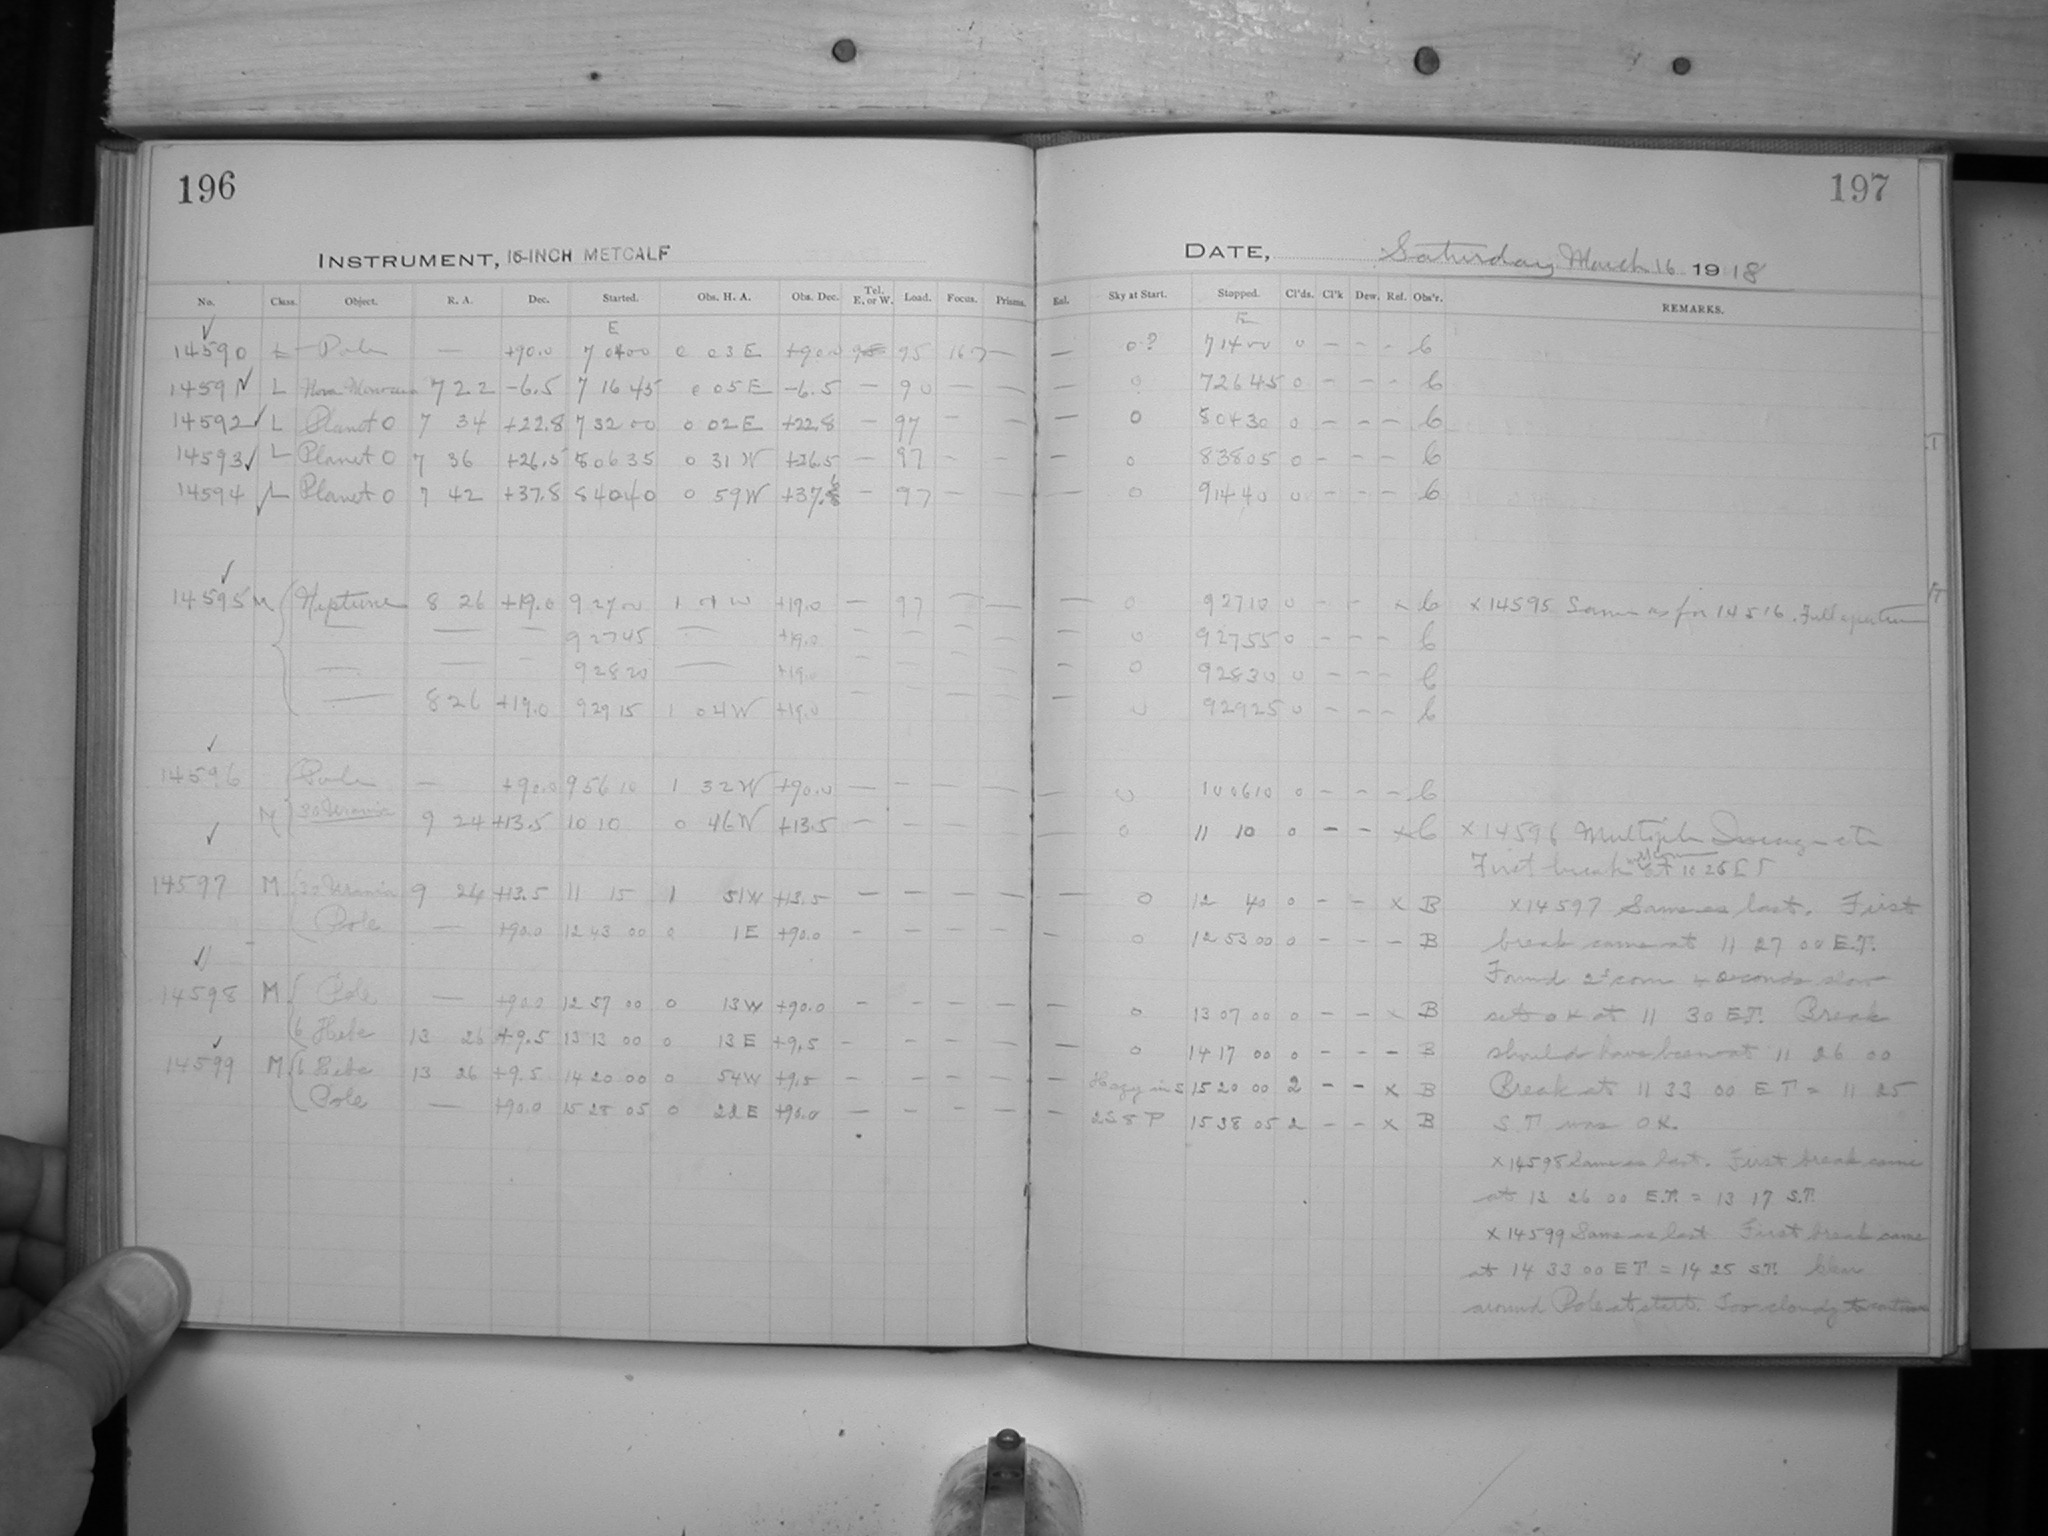 196
INSTRUMENT, 16-INCH METCALF
No. Class. Object. R. A. Dec. Started. Obs. H. A. Obs. Dec. Tel. E. or W. Load. Focus. Prisms.
E
14590 L Pole — +90.0 7 04 00 0 03 E +90.0 95 95 167 —
14591 L Nova Monoc 7 22 -6.5 7 16 45 0 05 E -6.5 — 90 — —
14592 L Planet O 7 34 +22.8 7 32 00 0 02 E +22.8 — 97 — —
14593 L Planet O 7 36 +26.5 8 06 35 0 31 W +26.5 — 97 — —
14594 L Planet O 7 42 +37.8 8 40 40 0 59 W — 97 — —
14595 M Neptune 8 26 +19.0 9 27 00 1 W +19.0 — 97 — —
— — — 9 27 45 — +19.0 — — — —
— — — 9 28 20 — +19.0 — — — —
— 8 26 +19.0 9 29 15 1 04 W +19.0 — — — —
14596 Pole — +90.0 9 56 10 1 32 W +90.0 — — — —
M 30 Urania 9 24 +13.5 10 10 0 46 W +13.5 — — — —
14597 M 30 Urania 9 24 +13.5 11 15 1 51 W +13.5 — — — —
Pole — +90.0 12 43 00 0 1 E +90.0 — — — —
14598 M Pole — +90.0 12 57 00 0 13 W +90.0 — — — —
6 Hebe 13 26 +9.5 13 13 00 0 13 E +9.5 — — — —
14599 M 6 Hebe 13 26 +9.5 14 20 00 0 54 W +9.5 — — — —
Pole — +90.0 15 28 05 0 22 E +90.0 — — — —
197
DATE, Saturday March 16 1918
Rel. Sky at Start. Stopped. Cl'ds. Cl'k Dew. Ref. Obs'r. REMARKS.
E
— 0? 7 14 00 0 — — — C
— 0 7 26 45 0 — — — C
— 0 8 04 30 0 — — — C
— 0 8 38 05 0 — — — C
— 0 9 14 40 0 — — — C
— 0 9 27 10 0 — — x C x 14595 Same as for 14516. Full aperture
— 0 9 27 55 0 — — — C
— 0 9 28 30 0 — — — C
— 0 9 29 25 0 — — — C
— 0 10 06 10 0 — — — C
— 0 11 10 0 — — x C x 14596 Multiple Images etc
First break at 10 26 E T
— 0 12 40 0 — — x B x 14597 Same as last. First
— 0 12 53 00 0 — — — B break came at 11 27 00 E.T.
Found 2d com 4 seconds slow
— 0 13 07 00 0 — — x B set OK at 11 30 E.T. Break
— 0 14 17 00 0 — — — B should have been at 11 26 00
— Hazy in S 15 20 00 2 — — x B Break at 11 33 00 E T = 11 25
— 2S 8 P 15 38 05 2 — — x B S.T. was OK.
x 14598 Same as last. First break came
at 13 26 00 E.T. = 13 17 S.T.
x 14599 Same as last. First break came
at 14 33 00 E T. = 14 25 S.T.
around Pole at start. Too cloudy to continue
T
T